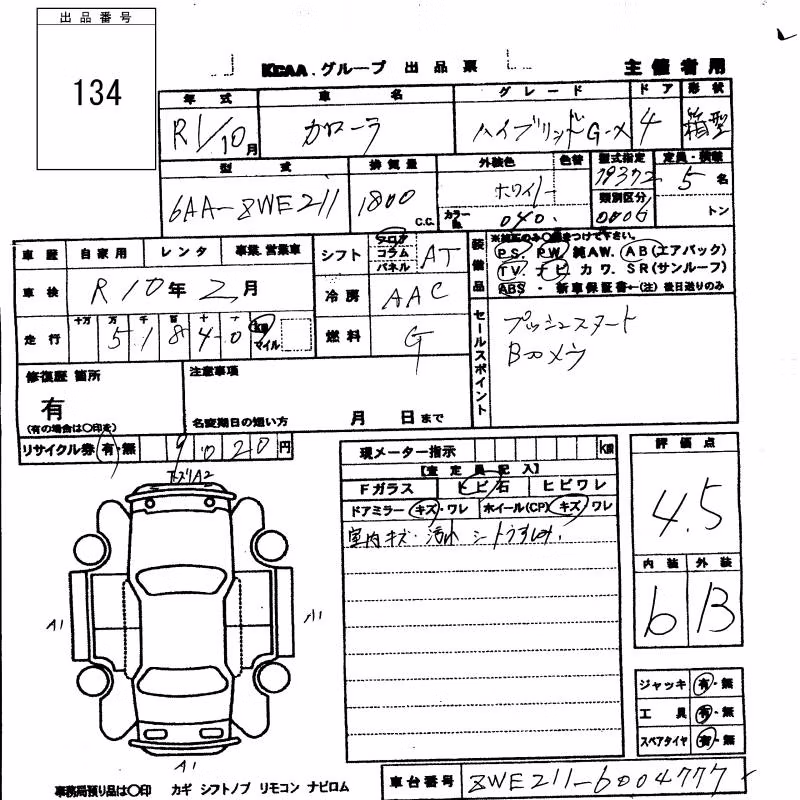 出品番号
134
KCAA.グループ 出品票
主催者用
年式 車名 グレード ドア 形状
R1/10月 カローラ ハイブリッドG-X 4 箱型
型式 排気量 外装色 色替 型式指定 定員・積載
6AA-ZWE211 1800 C.C. ホワイト 19372 5名
カラーNo. 040 類別区分 0006 トン
車歴 自家用 レンタ 事業.営業車
シフト フロア コラム パネル AT
装備品 ※純正のみ○印をつけて下さい。
PS. PW. 純AW. AB(エアバック)
TV. ナビ カワ. SR(サンルーフ)
ABS ・ 新車保証書←(注) 後日送りのみ
車検 R10年2月
冷房 AAC
走行 十万 万 千 百 十 一
51840 km マイル
燃料 G
セールスポイント
プッシュスタート
Bカメラ
修復歴 箇所
有
(有の場合は○印を)
注意事項
名変期日の短い方 月 日まで
リサイクル券 有・無 9020円
現メーター指示 km
【査定員記入】
Fガラス ヒビ石 ヒビワレ
ドアミラー キズ・ワレ ホイール(CP) キズ/ワレ
室内キズ・汚れ シートうすれ.
評価点
4.5
内装 外装
6 B
下スリA2
A1
A1
A1
ジャッキ 有・無
工具 有・無
スペアタイヤ 有・無
事務局預り品は○印 カギ シフトノブ リモコン ナビロム
車台番号 ZWE211-6004777